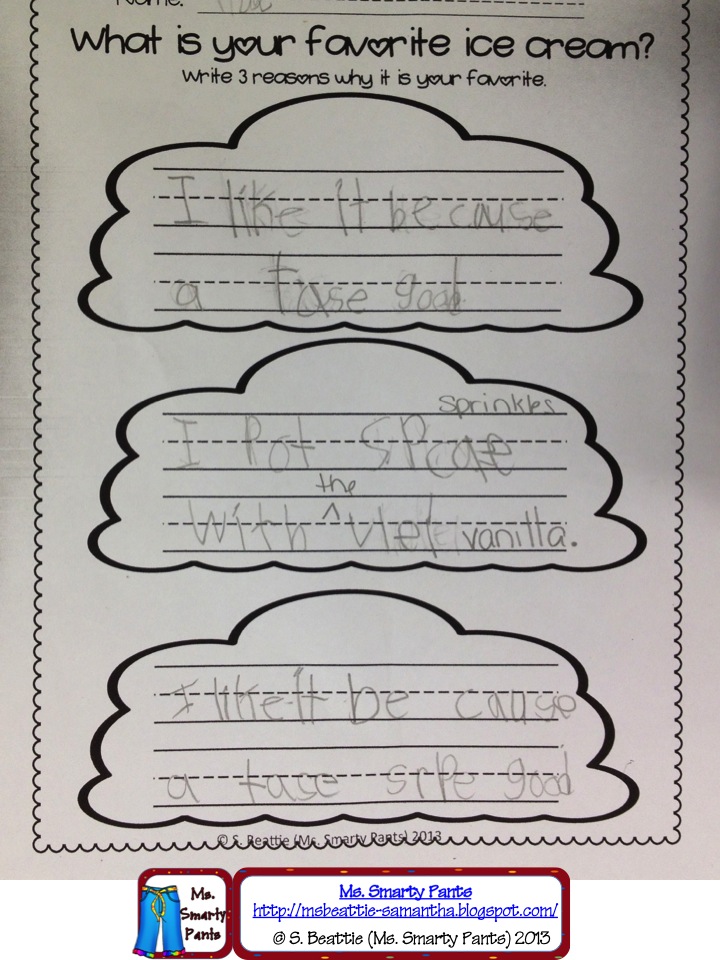 Name:
What is your favorite ice cream?
Write 3 reasons why it is your favorite.
I like it because
a tase good
sprinkles
I Pot SPcale
the
with ^ vlel vanilla.
I like it be cause
a tase srPe good
© S. Beattie (Ms. Smarty Pants) 2013
Ms. Smarty Pants
Ms. Smarty Pants
http://msbeattie-samantha.blogspot.com/
© S. Beattie (Ms. Smarty Pants) 2013